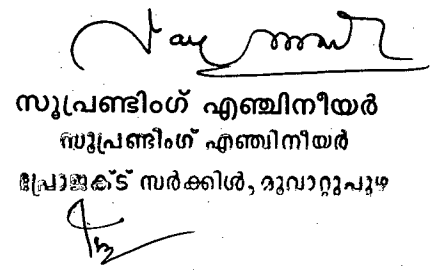 സൂപ്രണ്ടിംഗ് എഞ്ചിനീയർ
സൂപ്രണ്ടിംഗ് എഞ്ചിനീയർ
പ്രോജക്ട് സർക്കിൾ, മൂവാറ്റുപുഴ